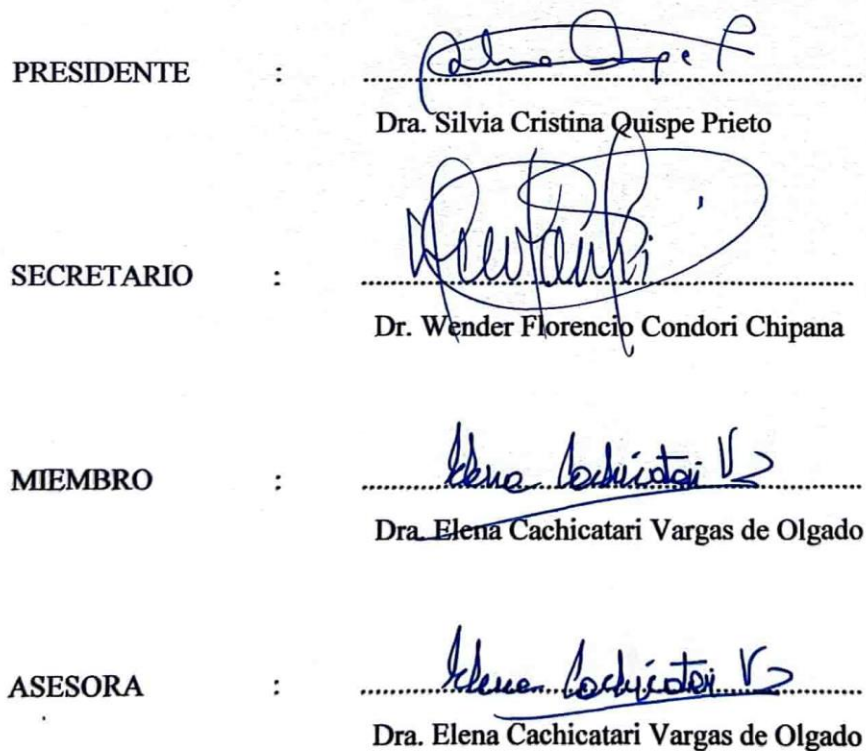 PRESIDENTE : ........................................
Dra. Silvia Cristina Quispe Prieto
SECRETARIO : ........................................
Dr. Wender Florencio Condori Chipana
Elena Cachicatari V
MIEMBRO : ........................................
Dra. Elena Cachicatari Vargas de Olgado
Elena Cachicatari V
ASESORA : ........................................
Dra. Elena Cachicatari Vargas de Olgado